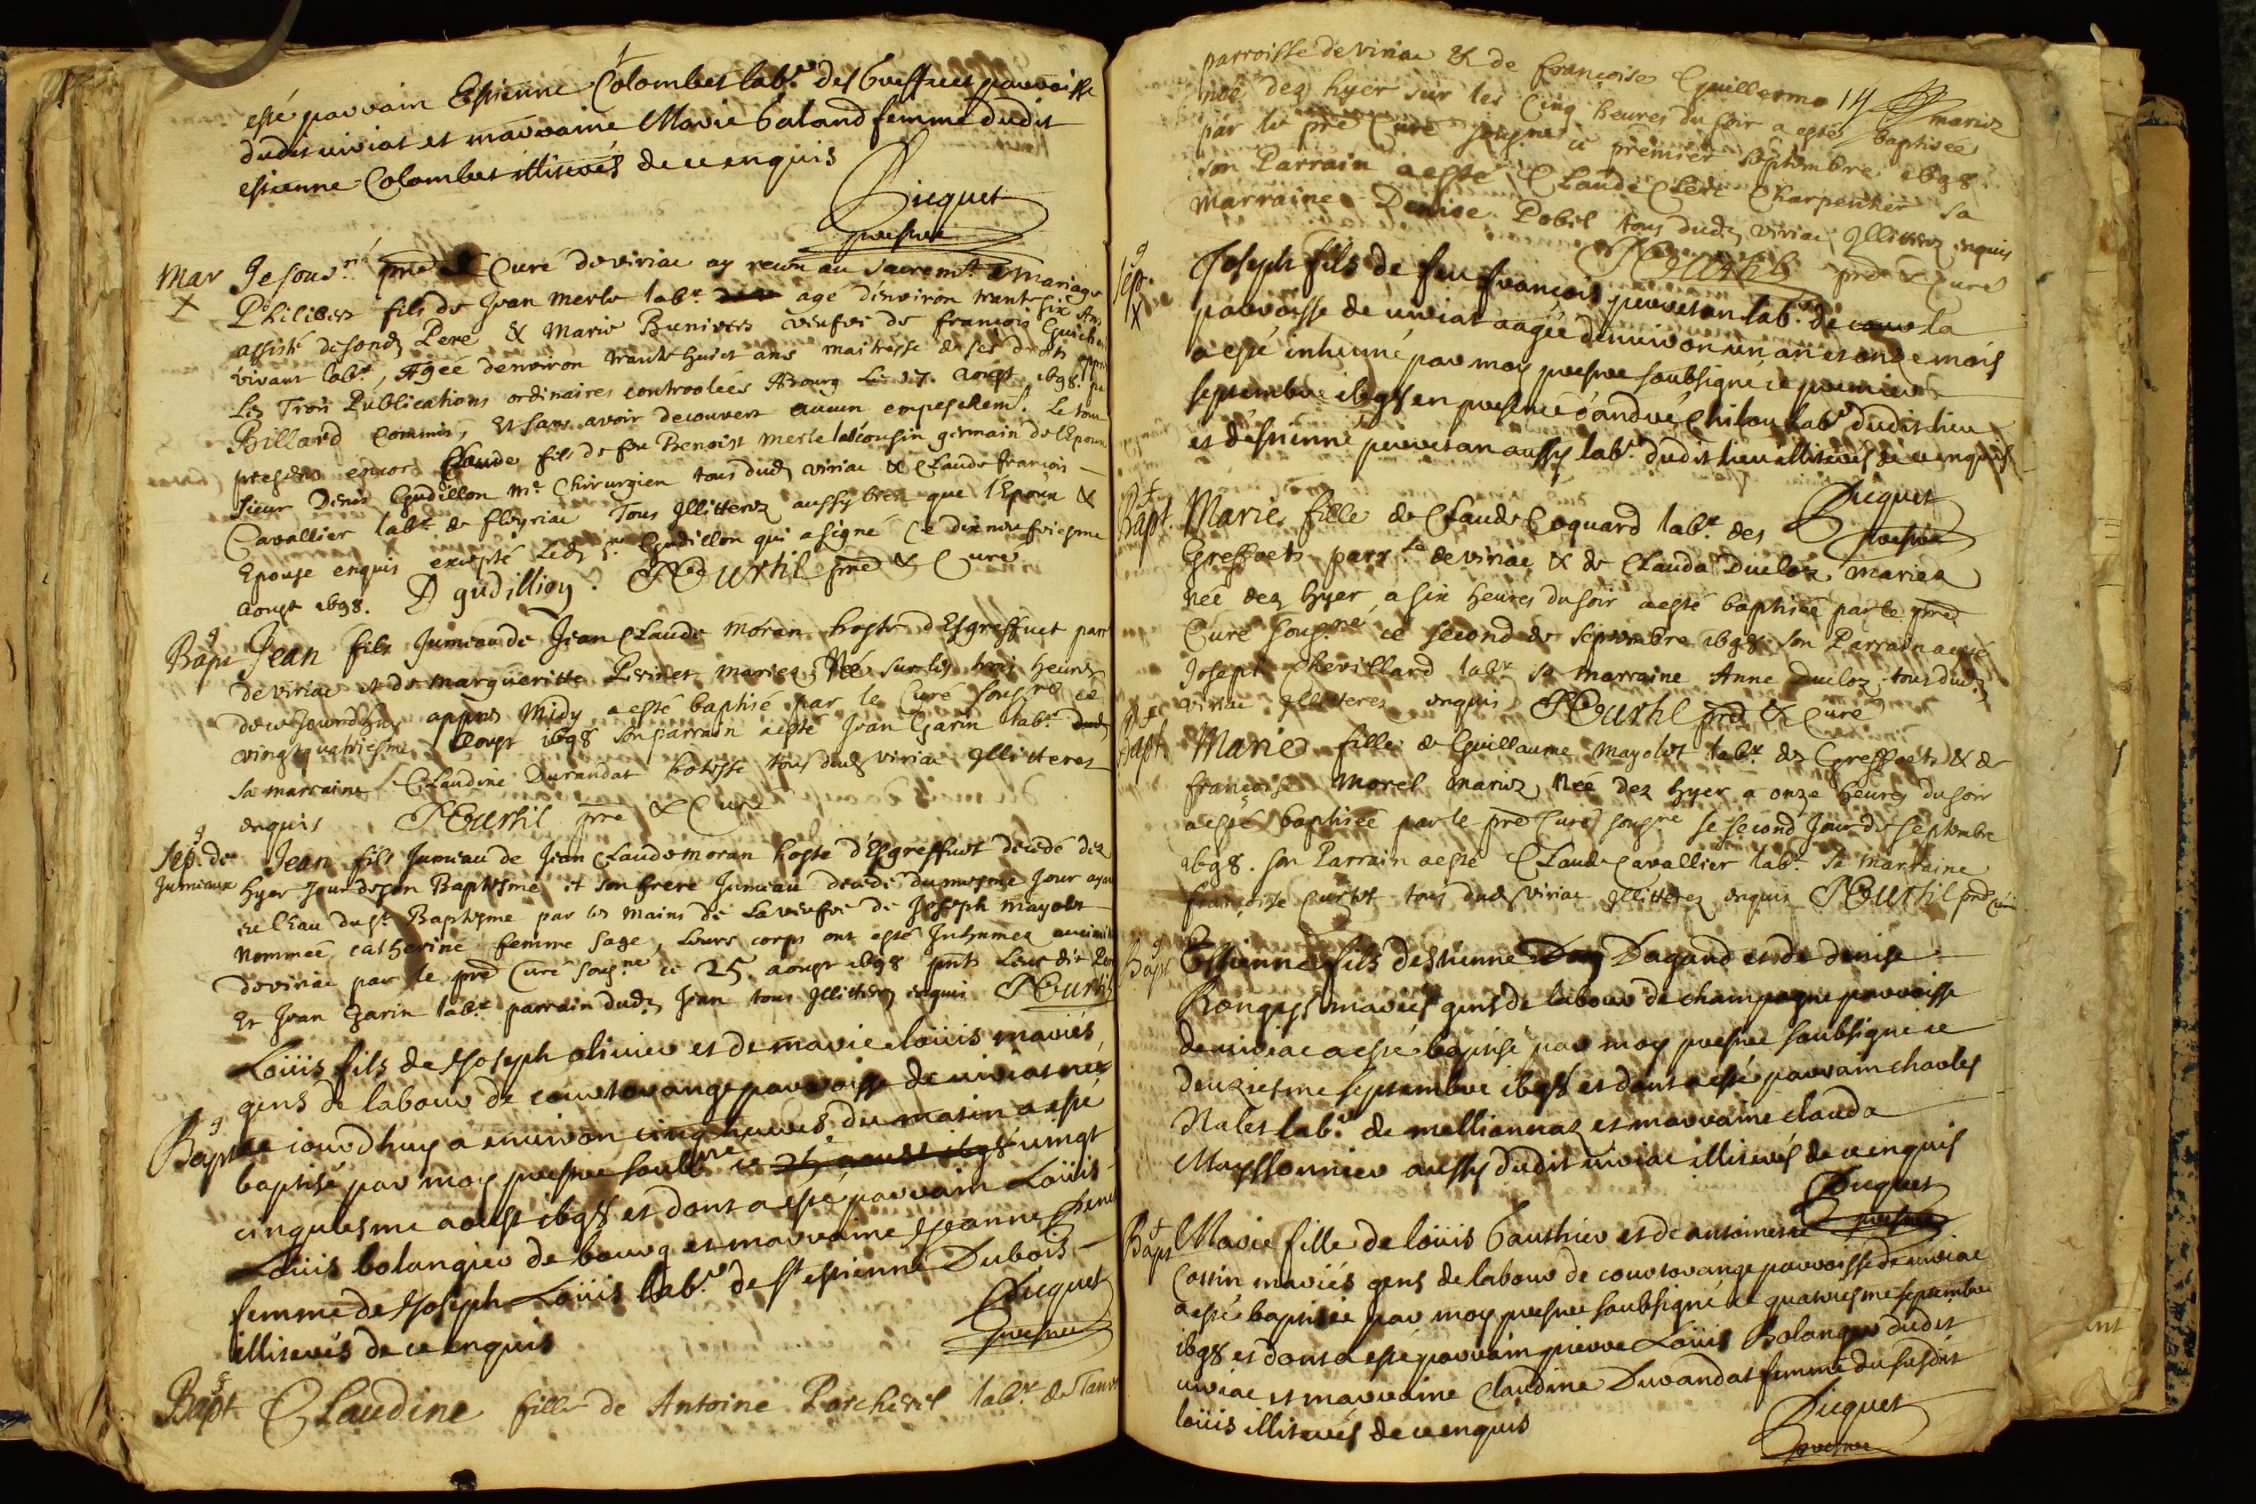 esté parrain Estienne Colombet lab.r des Greffuet parroisse
dudit viriat et marraine Marie Galand femme dudit
estienne Colombet illiterés de ce enquis
Bicquet
prestre
Mar
Je sous.né pre & Curé de viriac ay receu au sacrem.t d mariage
Philibert fils de Jean merle lab.r age d'environ trante six An
assisté de sond. Pere & Marie Bunivers veufve de françois Guich
vivant lab.r, Agéé denviron trante huict ans maitresse de ses droits
Les Trois Publications ordinaires controolées A Bourg Le 17. Aoust 1698. pa
Billard Commis, Et sans avoir decouvert aucun empeschem.t Le tou
presens encore Claude fils de feu Benoist merle lab. cousin germain de lEpoux
Sieur Denis Gudillon m.e Chirurgien tous dud. viriac & Claude françois
Cavallier lab.r de fleyriac Tous Jllitterez aussy bien que l'Epoux &
Epouse enquis excepté led. s.r Gudillon qui a signé Ce dix neufviesme
Aoust 1698. D gudillion. Pourhil pre & Curé
Bapt Jean fils Jumeau de Jean Claude Moran hoste d'Esgreffuet parr
de viriac et de Margueritte Perinet mariez, Né sur les trois heures
de ce Jourdhuy appres Midy a esté baptisé par le Curé sousné ce
vingt quatriesme Aoust 1698 son parrain a esté Jean Garin lab.r
sa marraine Claudine Durandat hotesse tous dud. viriac Jllitteres
enquis Pourhil pre & Curé
Sep. de
Jumeaux
Jean fils Jumeau de Jean Claude moran hoste d'Esgreffuet decedé dez
hyer Jour de son Baptesme et son frere Jumeau decedé du mesme Jour aya
eu l'Eau du S.t Baptesme par les Mains de La veufve de Joseph mayolet
Nommeé catherine femme sage, Leurs corps ont esté Jnhumez
de viriac par le pre Curé sous.né ce 25. Aoust 1698 pnts Leur dit
Et Jean Garin lab.r parrain dud. Jean tous Jllitterez enquis Pourhil
Loüis fils de Joseph olivier et de marie loüis mariés
gens de labour de courtorange parroisse de viriat né
Bapt ce jourdhuy a environ cinq heures du matin a esté
baptisé par moy prestre soub.né ce 25 aoust 1698 vingt
cinquiesme aoust 1698 et dont a esté parrain Loüis
Loüis bolangier de bourg et marraine Jeanne
femme de Joseph Loüis lab.r de St estienne Dubois
illiterés de ce enquis Bicquet
prestre
Bapt Claudine fille de Antoine Porcherel lab.r de
parroisse de viriac & de françoise Guillermo 14 mariez
neé dez hyer sur les Cinq heures du soir a esté baptisée
par le pre Curé sousigné ce premier septembre 1698.
son Parrain a esté Claude Clerc Charpentier sa
marraine Denise Pobel tous dud. viriac Jllitterez enquis
Pourhil pre & Curé
Sep. Joseph fils de feu françois perretan lab.r de
parroisse de viriat aagée denviron un an et onze mois
a esté inhumé par moy prestre soubsigné ce premier
septembre 1698 en presence d'andré Chilou lab.r dudit lieu
et destienne perretan aussy lab.r dudit lieu illiterés de ce enquis
Bicquet
prestre
Bapt. Marie fille de Claude Coquard lab.r des
Greffaets parr.se de viriac & de Clauda Ducloz mariez
Neé dez hyer a six heures du soir a esté baptiseé par le pre
Curé sous.né ce second de septembre 1698 son Parrain a esté
Joseph Chevillard lab.r sa marraine Anne Ducloz tous dud.
viriac Jllitterez enquis Pourhil pre & Curé
Bapt. Marie fille de Guillaume Mayolet lab.r dez Greffaets & de
françoise Morel mariez Neé dez hyer a onze heures du soir
a esté baptiseé par le pre Curé sous.né le second Jour de septembre
1698. son Parrain a esté Claude Cavallier lab.r sa marraine
françoise Curtet tous dud. viriac Jllitterez enquis Pourhil pre
Bapt Estienne fils destienne Dagand et de denise
Rongeys mariés gens de labour de champagne parroisse
de viriac a esté baptisé par moy prestre soubsigné ce
deuziesme septembre 1698 et dont a esté parrain charles
Nalet lab.r de mellionnaz et marraine clauda
Mayssonnier aussy dudit viriac illiterés de ce enquis
Bicquet
prestre
Bapt Marie fille de loüis Gauthier et de antoinette
Cottin mariés gens de labour de courtorange parroisse de viriac
a esté baptisée par moy prestre soubsigné ce quatriesme septembre
1698 et dont a esté parrain pierre Loüis Bolanger dudit
viriac et marraine Claudine Durandat femme du susdit
loüis illiterés de ce enquis Bicquet
prestre